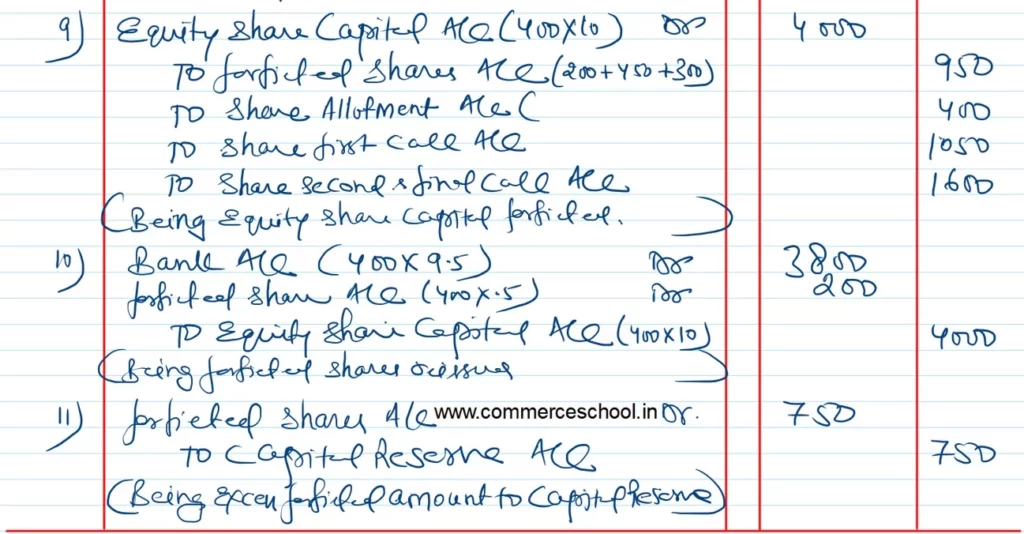 9) Equity Share Capital A/c (400×10) Dr 4000
To forfieted shares A/c (200+450+300) 950
To Share Allotment A/c ( 400
To Share first call A/c 1050
To Share second & final Call A/c 1600
(Being Equity share capital forfieted.)
10) Bank A/c (400×9.5) Dr 3800
forfieted share A/c (400×.5) Dr 200
To Equity Share Capital A/c (400×10) 4000
(Being forfieted shares reissued)
11) forfieted shares A/c www.commerceschool.in Dr. 750
To Capital Reserve A/c 750
(Being excess forfieted amount to Capital Reserve)